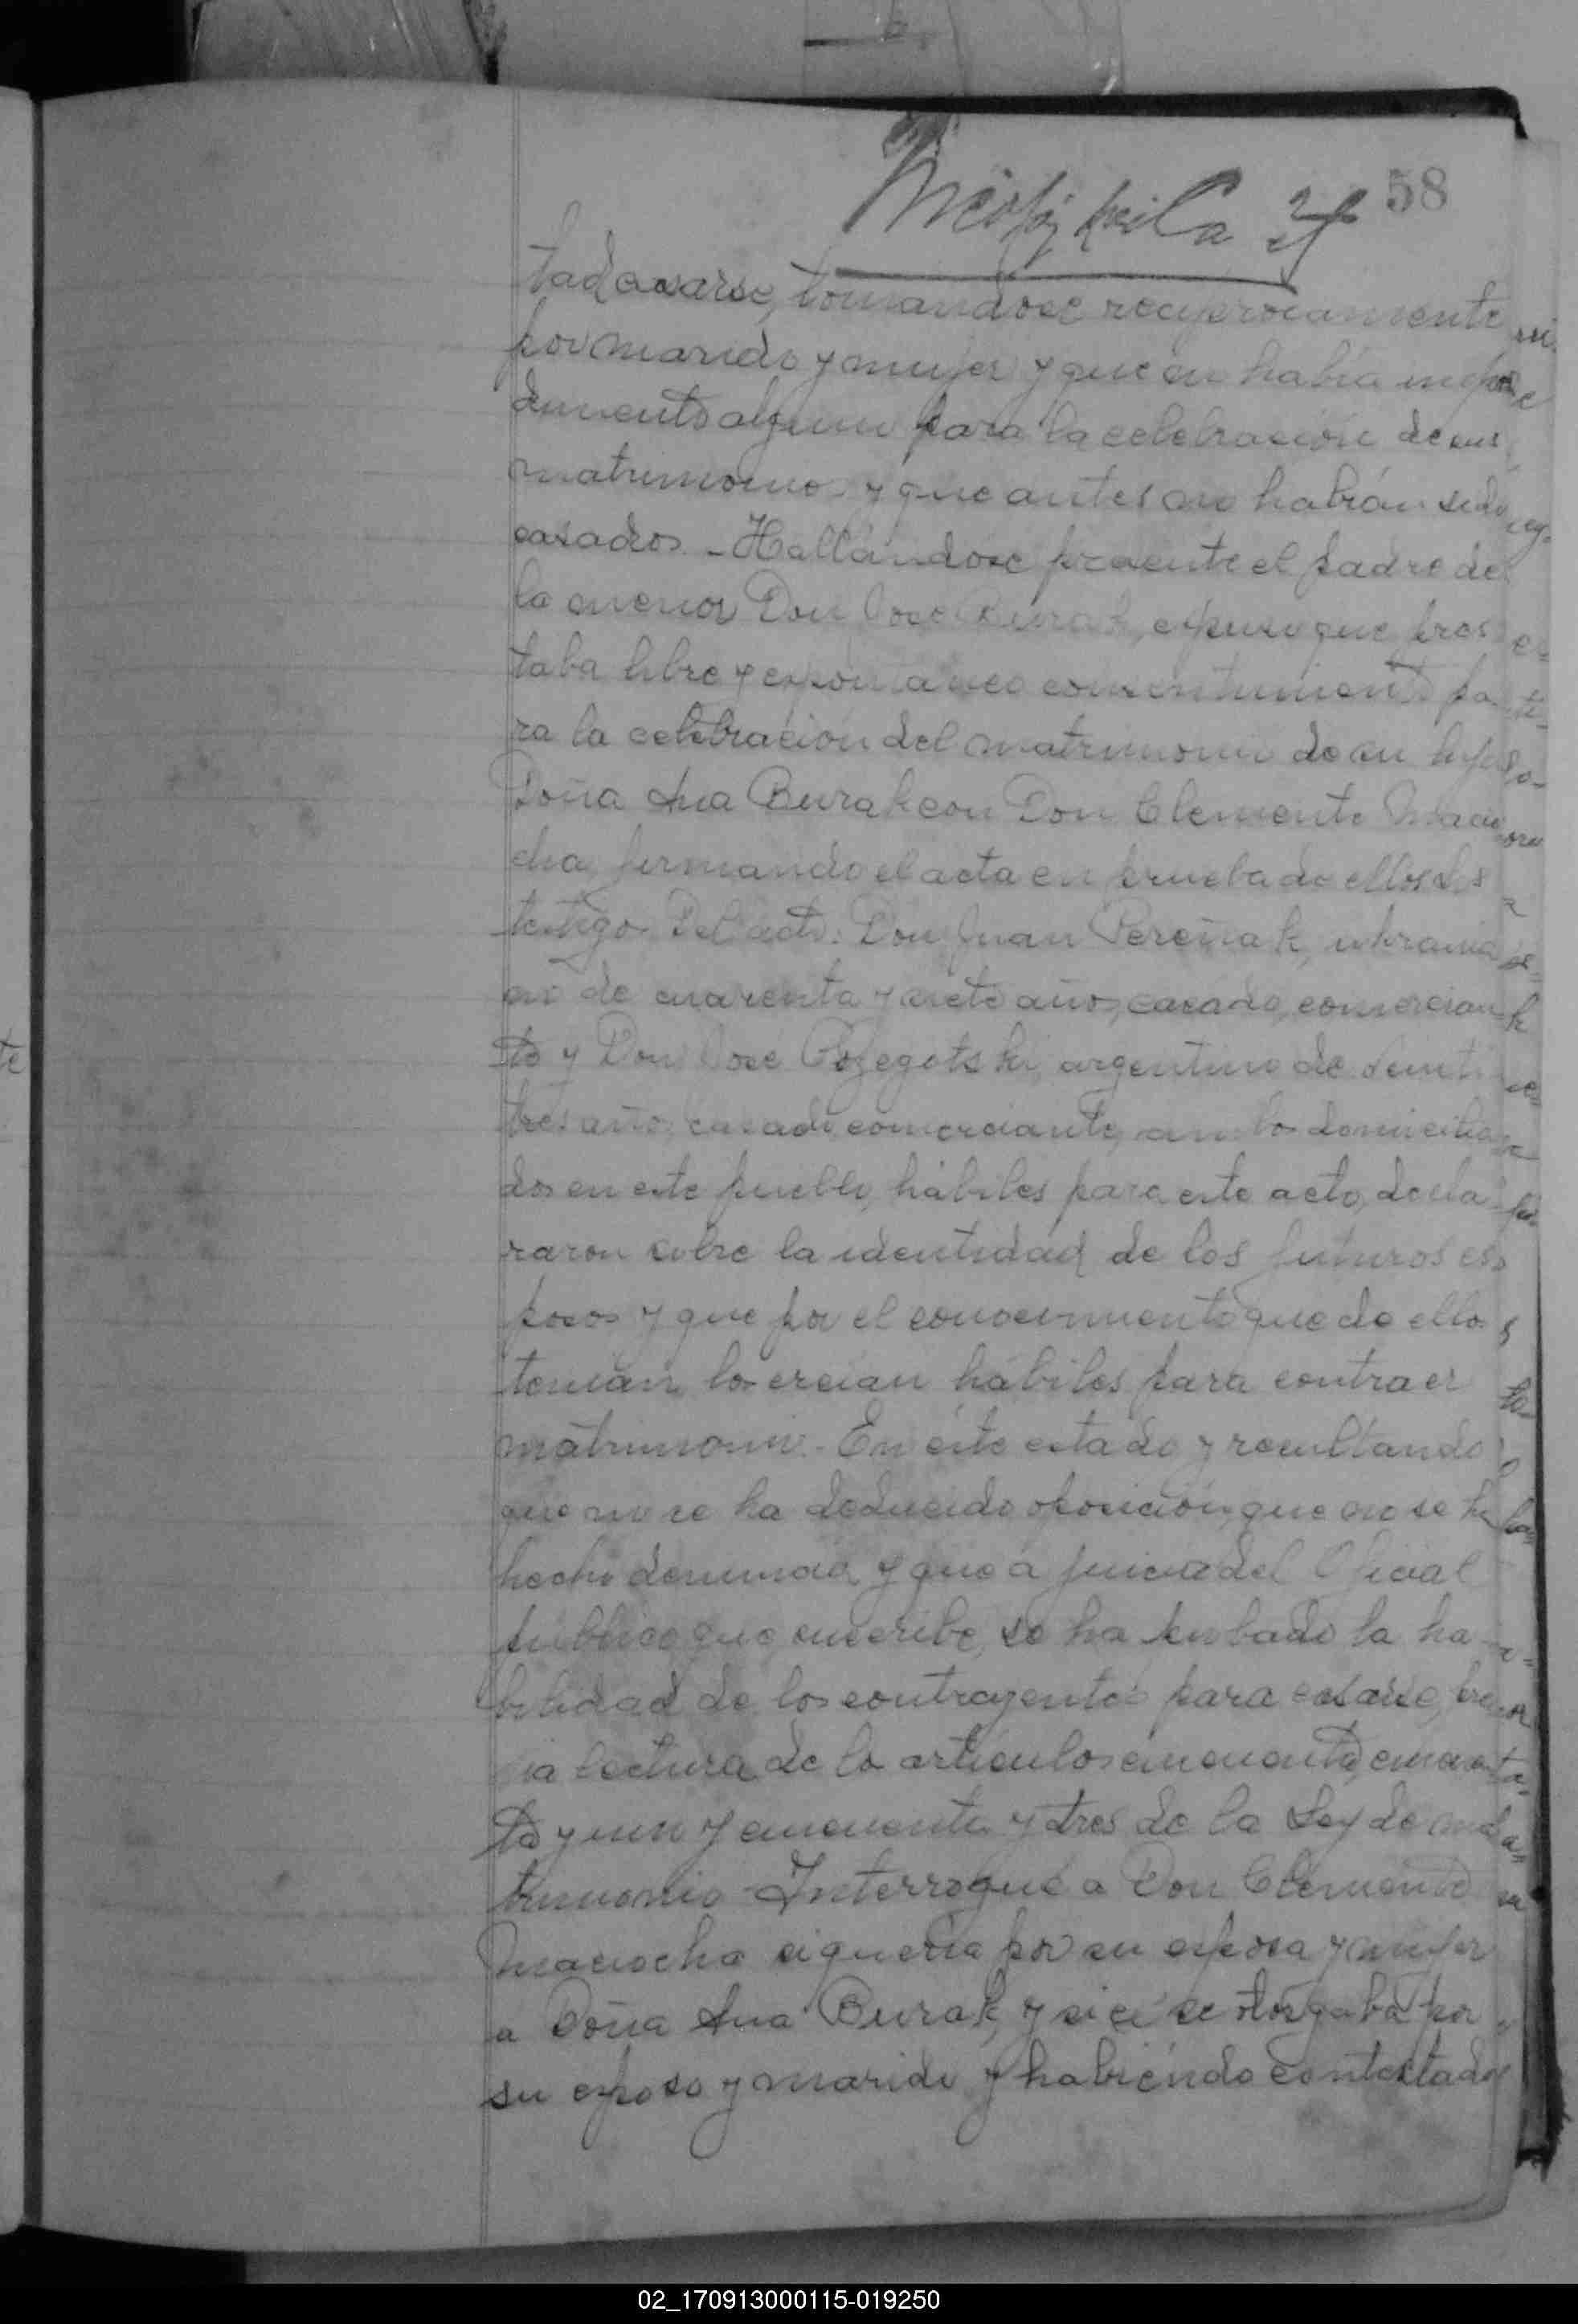 58
tad casarse, tomandose reciprocamente
por marido y mujer y que no habia impe
dimento alguno para la celebración de sus
matrimonio y que antes no habían sido
casados. - Hallándose presente el padre de
la menor Don José Burak, expuso que pres
taba libre y espontaneo consentimiento pa
ra la celebración del matrimonio de su hija
Doña Ana Burak con Don Clemente Macio
cha, firmando el acta en prueba de ellos los
testigos Del acto: Don Juan Pereñak, ukrania
no de cuarenta y siete años, casado, comercian
te y Don José argentino de veinti
tres año, casado, comerciante, ambos domicilia
dos en este pueblo, hábiles para este acto, decla
raron sobre la identidad de los futuros es
posos y que por el conocimiento que de ellos
tenían, los creían hábiles para contraer
matrimonio. - En este estado y resultando
que no se ha deducido oposición, que no se ha
hecho denuncia y que a juicio del Oficial
público que suscribe, se ha probado la ha
bilidad de los contrayentes para casarse, pre
via lectura de los artículos cincuenta, cincuen
ta y uno y cincuenta y tres de la Ley de ma
trimonio - Interrogué a Don Clemente
Maciocha si queria por su esposa y mujer
a Doña Ana Burak, y si él se otorgaba por
su esposo y marido y habiéndo contestado
02_170913000115-019250